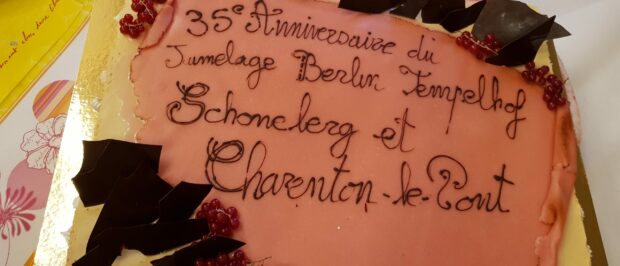 35e Anniversaire du
Jumelage Berlin Tempelhof
Schoneberg et
Charenton-le-Pont